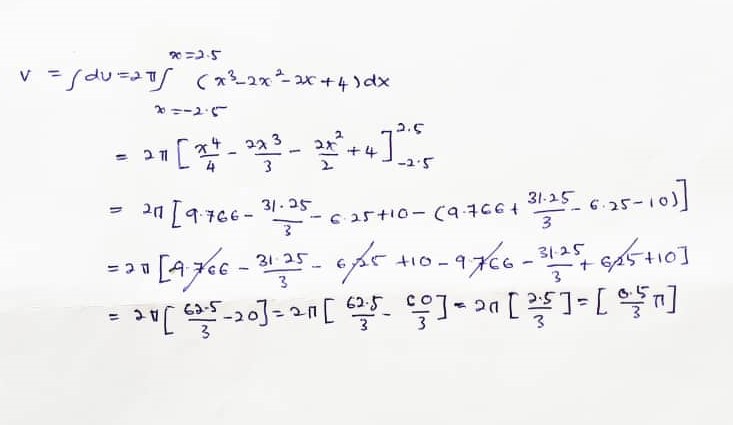 x=2.5
V = ∫dv = 2π∫ (x³-2x²-2x+4)dx
x=-2.5
= 2π[x⁴/4 - 2x³/3 - 2x²/2 + 4]2.5 -2.5
= 2π[9.766 - 31.25/3 - 6.25+10-(9.766+31.25/3 - 6.25-10)]
= 2π[9.766 - 31.25/3 - 6.25 +10 - 9.766 - 31.25/3 + 6.25+10]
= 2π[62.5/3 -20] = 2π[62.5/3 - 60/3] = 2π[2.5/3] = [ π]